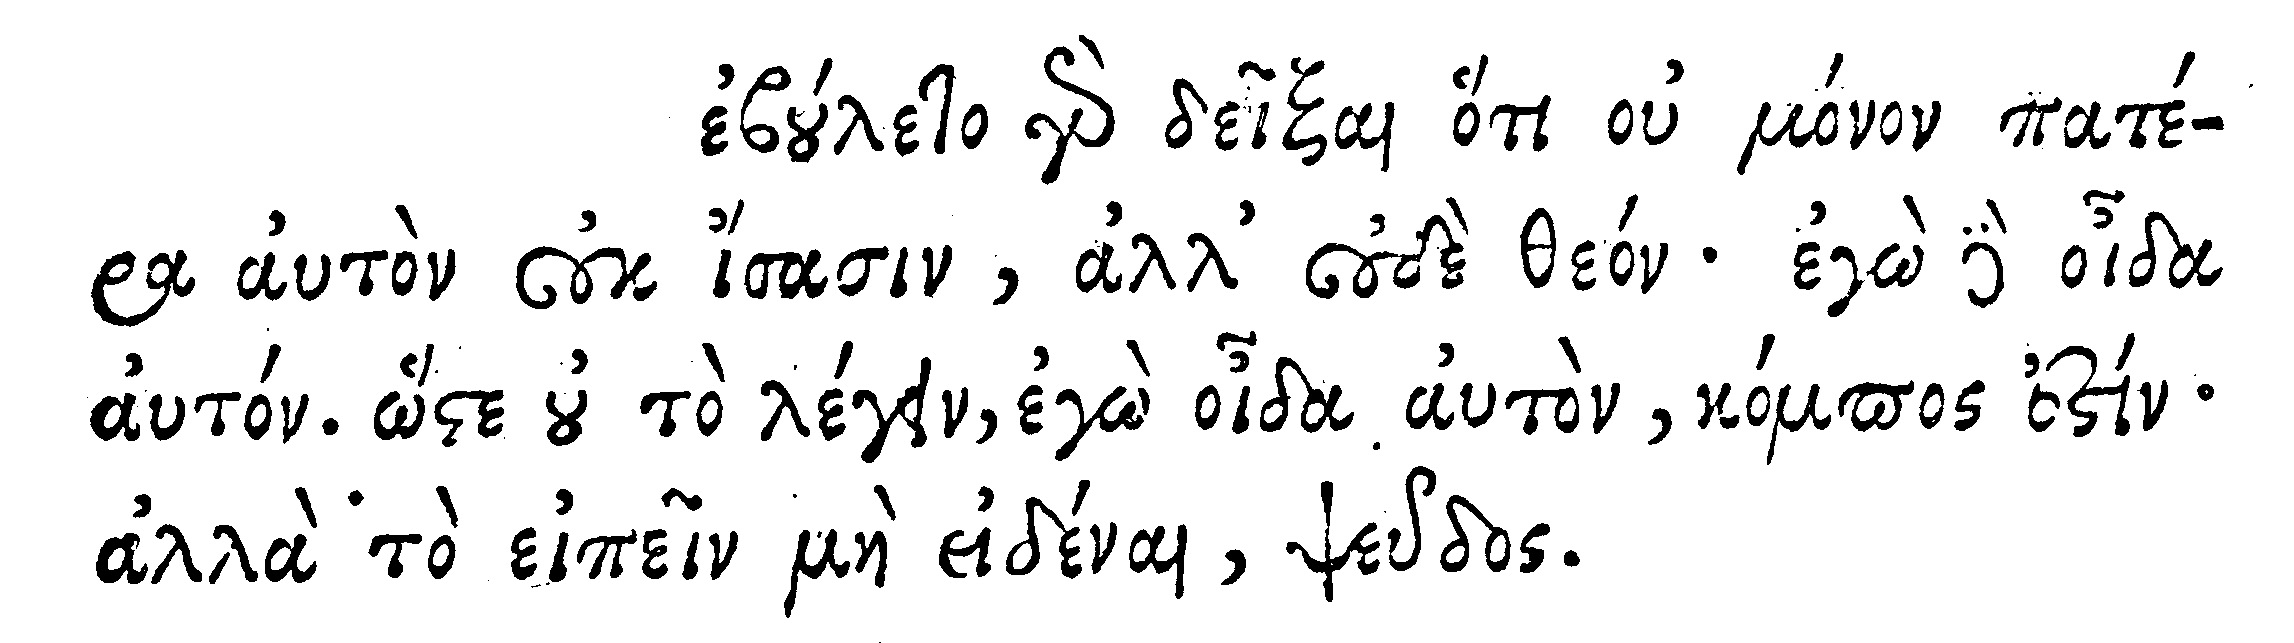 ἐβούλετο γὰρ δεῖξαι ὅτι οὐ μόνον πατέ-
ρα αὐτὸν οὐκ ἴσασιν, ἀλλ’ οὐδὲ θεόν· ἐγὼ δὲ οἶδα
αὐτόν. ὥστε οὐ τὸ λέγειν, ἐγὼ οἶδα αὐτὸν, κόμπος ἐστίν·
ἀλλὰ τὸ εἰπεῖν μὴ εἰδέναι, ψεῦδος.